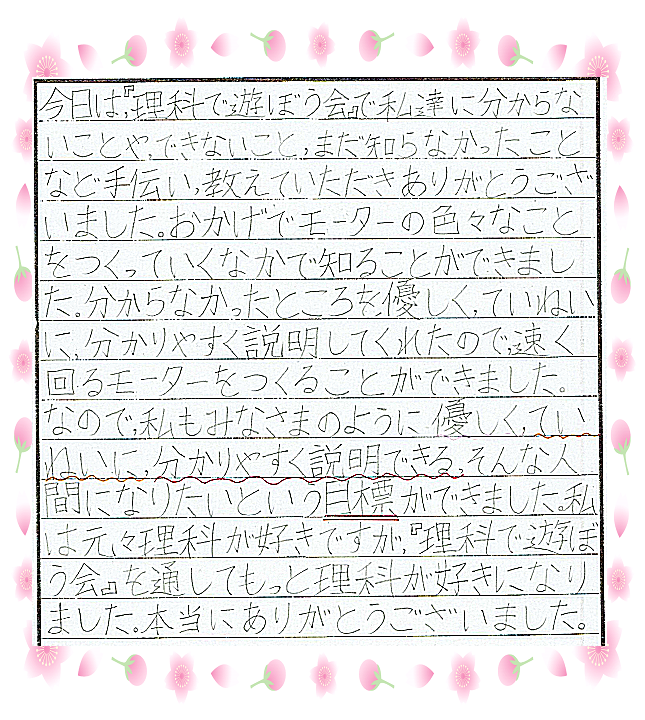 今日は,『理科で遊ぼう会』で私達に分からな
いことや,できないこと,まだ知らなかったこと
など手伝い,教えていただきありがとうござ
いました。おかげでモーターの色々なこと
をつくっていくなかで知ることができまし
た。分からなかったところを優しく,ていねい
に,分かりやすく説明してくれたので速く
回るモーターをつくることができました。
なので,私もみなさまのように優しく,てい
ねいに,分かりやすく説明できる,そんな人
間になりたいという目標ができました。私
は元々理科が好きですが,『理科で遊ぼ
う会』を通してもっと理科が好きになり
ました。本当にありがとうございました。